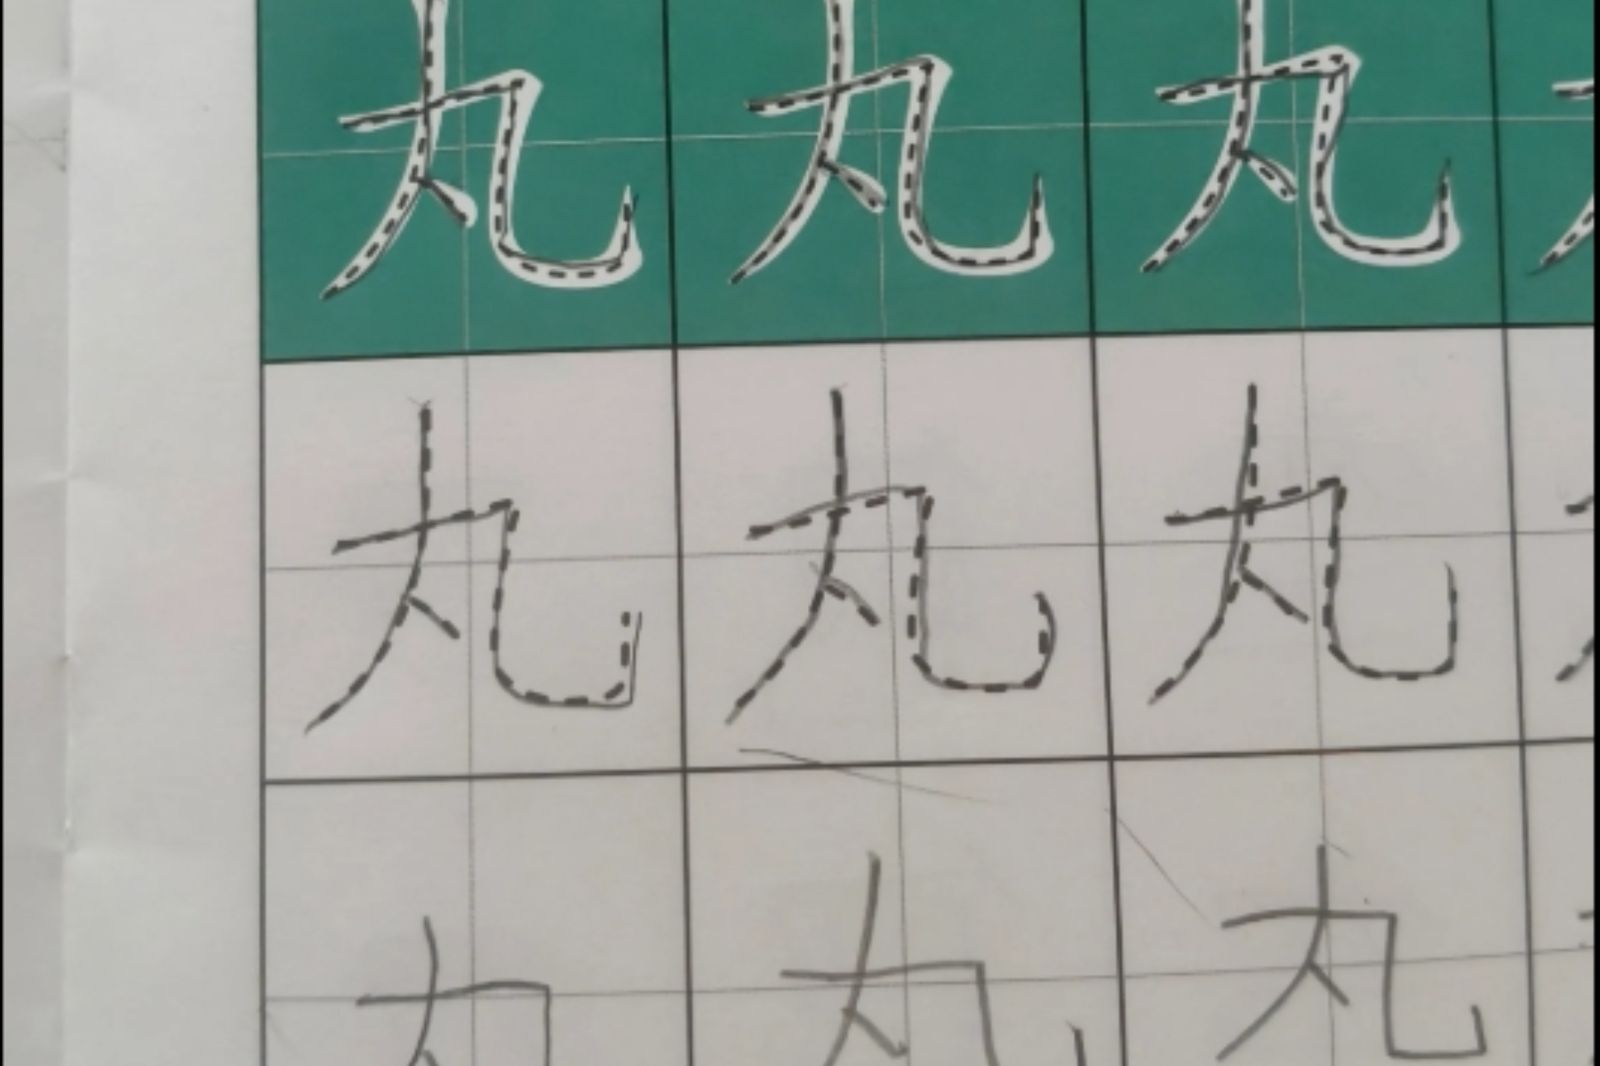 丸 丸 丸
丸 丸 丸
丸 丸 丸